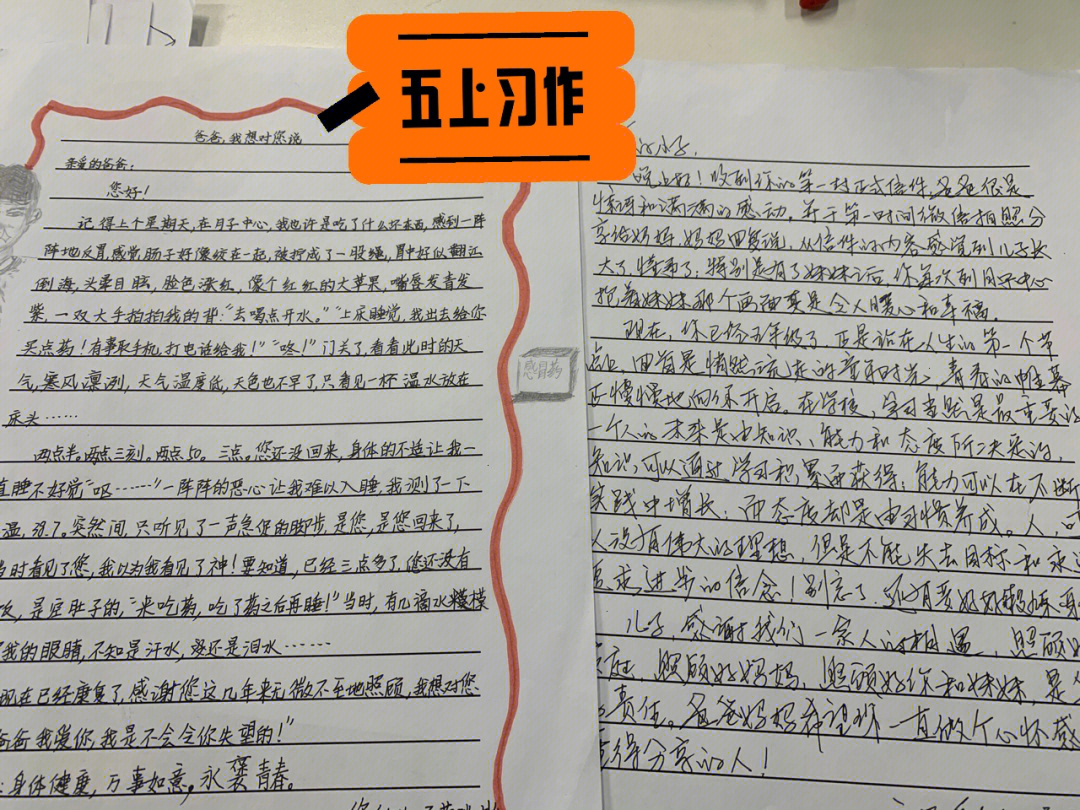 五上习作
爸爸,我想对您说
亲爱的爸爸:
您好!
记得上个星期天,在月子中心,我也许是吃了什么坏东西,感到一阵
阵地反胃,感觉肠子好像绞在一起,被拧成了一股绳,胃中好似翻江
倒海,头晕目眩,脸色涨红,像个红红的大苹果,嘴唇发青发
紫,一双大手拍拍我的背:“去喝点开水。”“上床睡觉,我出去给你
买点药!有事取手机,打电话给我!”“咚!”门关了,看看此时的天
气,寒风凛冽,天气温度低,天色也不早了,只看见一杯温水放在
床头……
感冒药
两点半。两点三刻。两点50。三点。您还没回来,身体的不适让我一
直睡不好觉“呕……”一阵阵的恶心让我难以入睡,我测了一下
温,37.7。突然间,只听见了一声急促的脚步,是您,是您回来了,
当时看见了您,我以为我看见了神!要知道,已经三点多了,您还没有
饭,是空肚子的,“来吃药,吃了药之后再睡!”当时,有几滴水模
了我的眼睛,不知是汗水,还是泪水……
现在已经康复了,感谢您这几年来无微不至地照顾,我想对您
爸爸我爱你,我是不会令你失望的!”
:身体健康,万事如意,永葆青春。
儿子,
晚上好!收到你的第一封正式信件,爸爸很是
惊讶和满满的感动,并于第一时间微信拍照分
享给妈妈,妈妈回复说,从信件的内容感觉到儿子长
大了,懂事了;特别是有了妹妹之后,你每次到月子中心
抱着妹妹那个画面真是令人暖心和幸福。
现在,你已经五年级了,正是站在人生的第一个节
点,回首是悄然流走的童年时光,青春的帷幕
正慢慢地向你开启。在学校,学习当然是最重要的
一个人的未来是由知识、能力和态度所决定的,
知识,可以通过学习积累而获得;能力可以在不断
实践中增长;而态度却是由习惯养成。人,可
人没有伟大的理想,但是不能失去目标和
追求进步的信念!别忘了,还有要好好
儿子,感谢我们一家人的相遇,照顾好
家庭,照顾好妈妈,照顾好你和妹妹,是
责任。爸爸妈妈希望你一直做个心怀感
懂得分享的人!